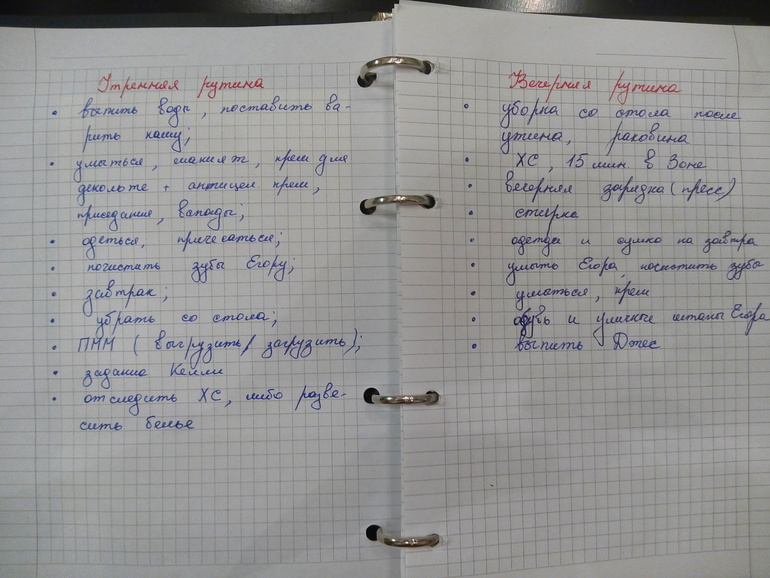 Утренняя рутина
• выпить воды, поставить ва-
рить кашу;
• умыться, макияж, крем для
декольте + антицел крем,
приседания, выпады;
• одеться, причесаться;
• почистить зубы Егору;
• завтрак;
• убрать со стола;
• ПММ (выгрузить/загрузить);
• задание Келли
• отследить ХС, либо разве-
сить белье
Вечерняя рутина
• уборка со стола после
ужина, раковина
• ХС, 15 мин. в Зоне
• вечерняя зарядка (пресс)
• стирка
• одежда и сумка на завтра
• умыть Егора, почистить зубы
• умыться, крем
• обувь и уличные штаны Егора
• выпить Джес